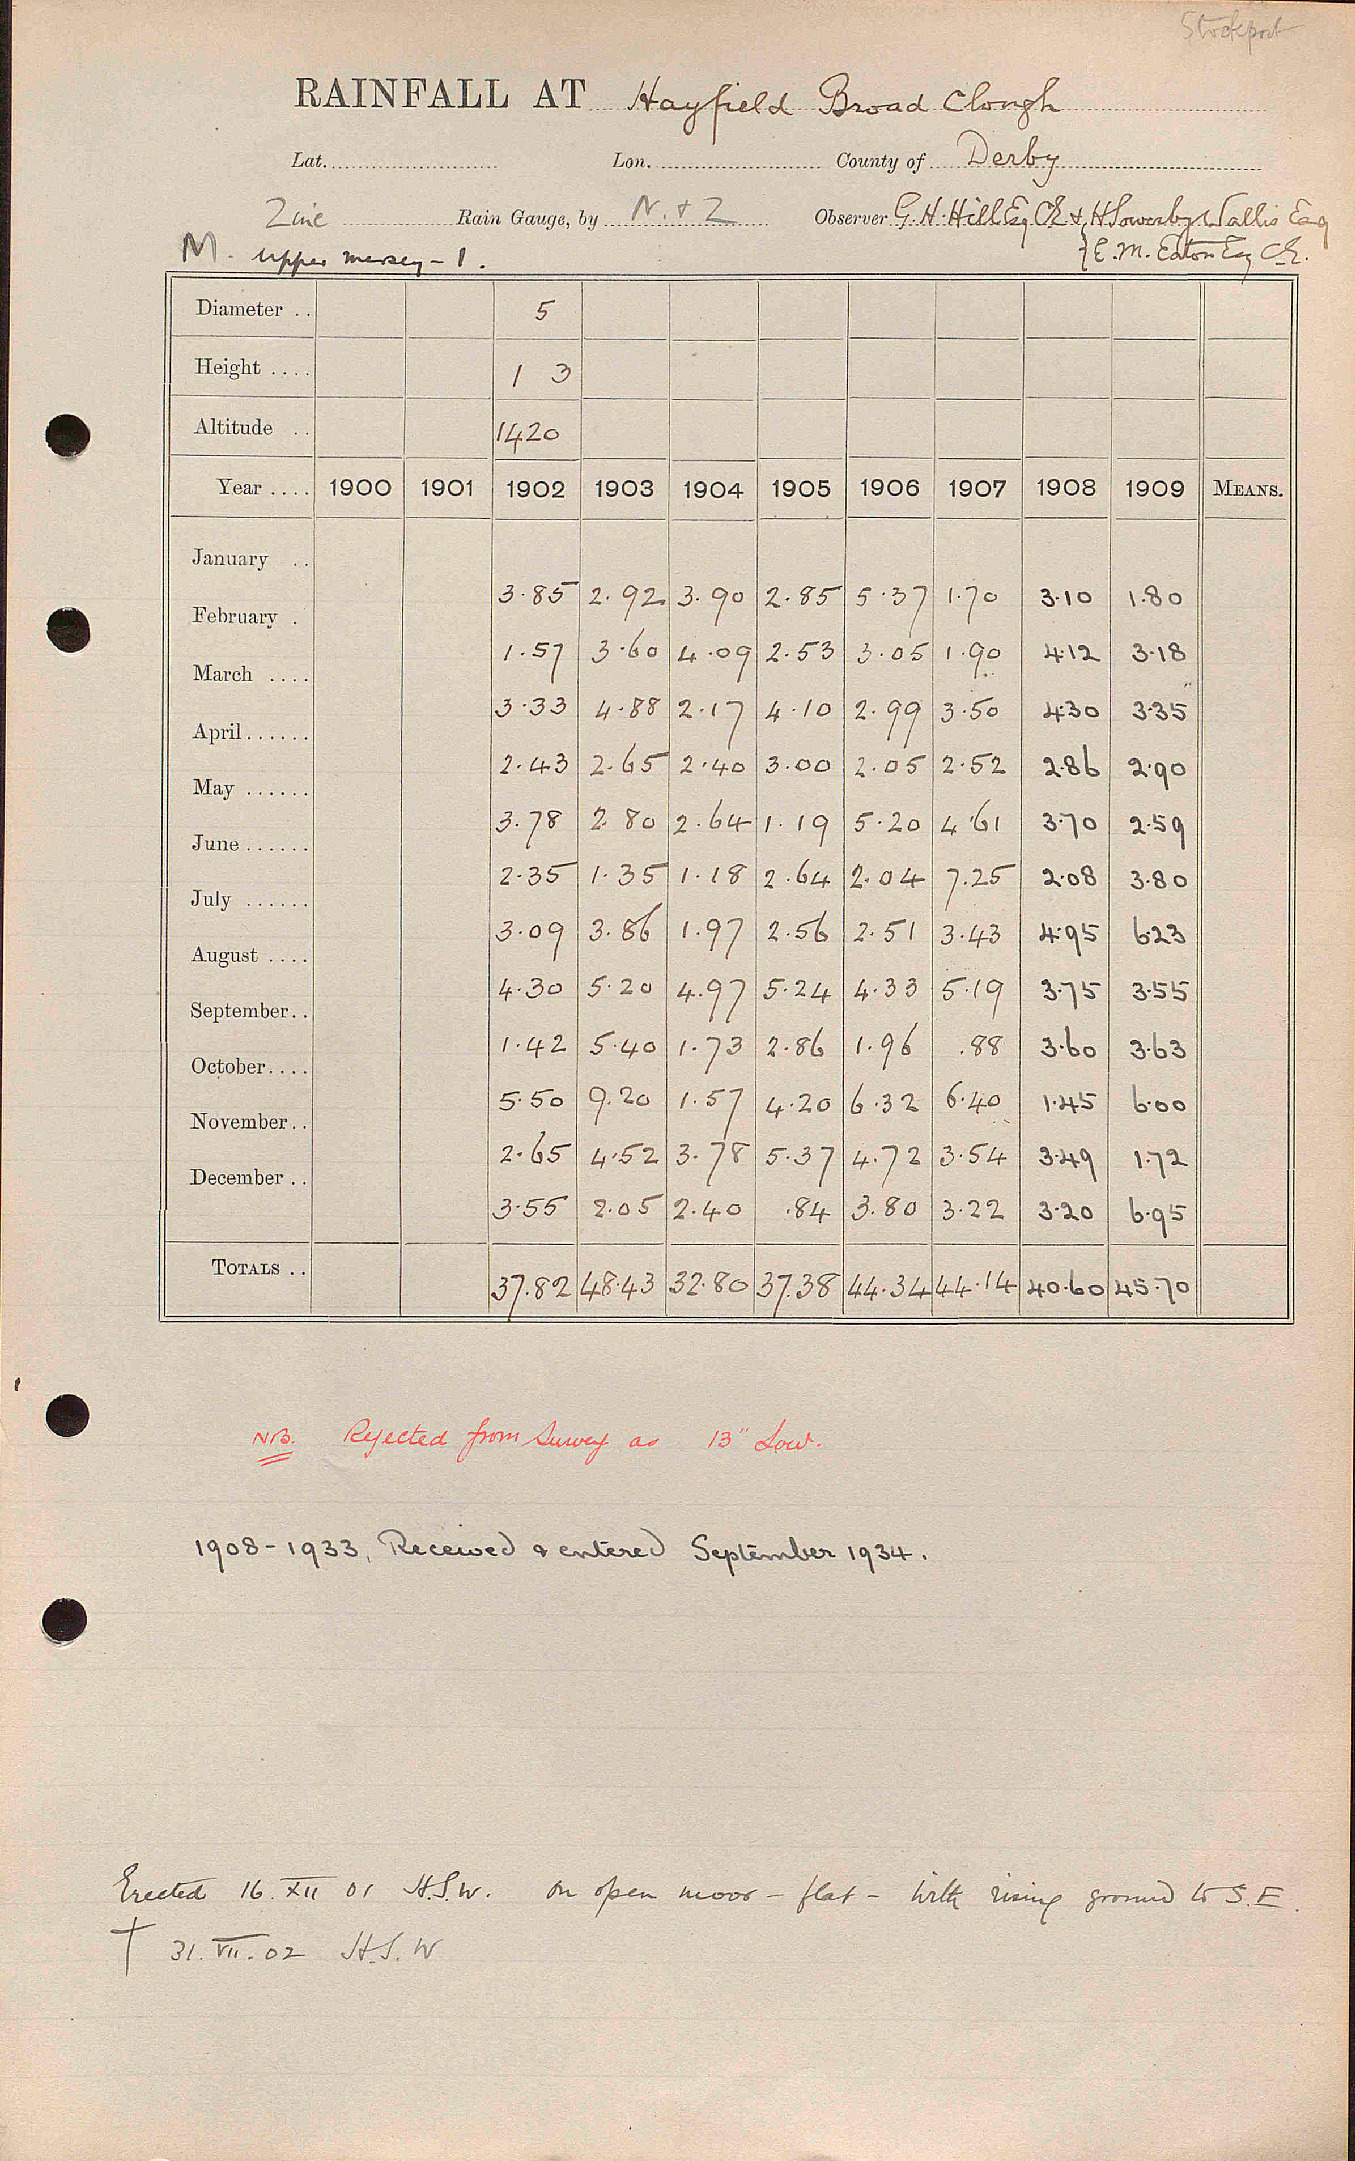 Stockport
RAINFALL AT Hayfield Broad Clough
Lat. Lon. County of Derby
Zinc Rain Gauge, by N. & Z Observer G. H. Hill Esq CE & H Sowerby Wallis Esq
M. Upper Mersey - 1. & E. M. Eaton Esq CE.
Diameter .. 5
Height .... 1 3
Altitude .. 1420
Year .... 1900 1901 1902 1903 1904 1905 1906 1907 1908 1909 MEANS.
January ..
3.85 2.92 3.90 2.85 5.37 1.70 3.10 1.80
February .
1.57 3.60 4.09 2.53 3.05 1.90 4.12 3.18
March ....
3.33 4.88 2.17 4.10 2.99 3.50 4.30 3.35
April......
2.43 2.65 2.40 3.00 2.05 2.52 2.86 2.90
May ......
3.78 2.80 2.64 1.19 5.20 4.61 3.70 2.59
June......
2.35 1.35 1.18 2.64 2.04 7.25 2.08 3.80
July ......
3.09 3.86 1.97 2.56 2.51 3.43 4.95 6.23
August ....
4.30 5.20 4.97 5.24 4.33 5.19 3.75 3.55
September..
1.42 5.40 1.73 2.86 1.96 .88 3.60 3.63
October....
5.50 9.20 1.57 4.20 6.32 6.40 1.45 6.00
November..
2.65 4.52 3.78 5.37 4.72 3.54 3.49 1.72
December ..
3.55 2.05 2.40 .84 3.80 3.22 3.20 6.95
TOTALS .. 37.82 48.43 32.80 37.38 44.34 44.14 40.60 45.70
NB. Rejected from Survey as 13" Low.
1908-1933, Received & entered September 1934.
Erected 16.XII 01 H.S.W. on open moor - flat - with rising ground to S.E.
† 31.VII.02 H.S.W